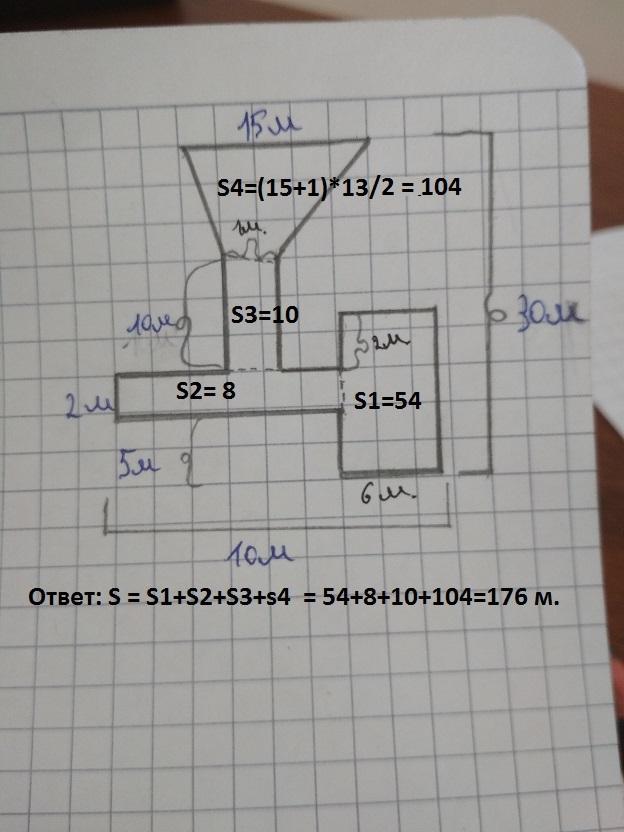 15м
S4=(15+1)*13/2 = 104
1м.
10м
S3=10
30м
2м
S2= 8
2м
S1=54
5м
6 м.
10м
Ответ: S = S1+S2+S3+s4 = 54+8+10+104=176 м.